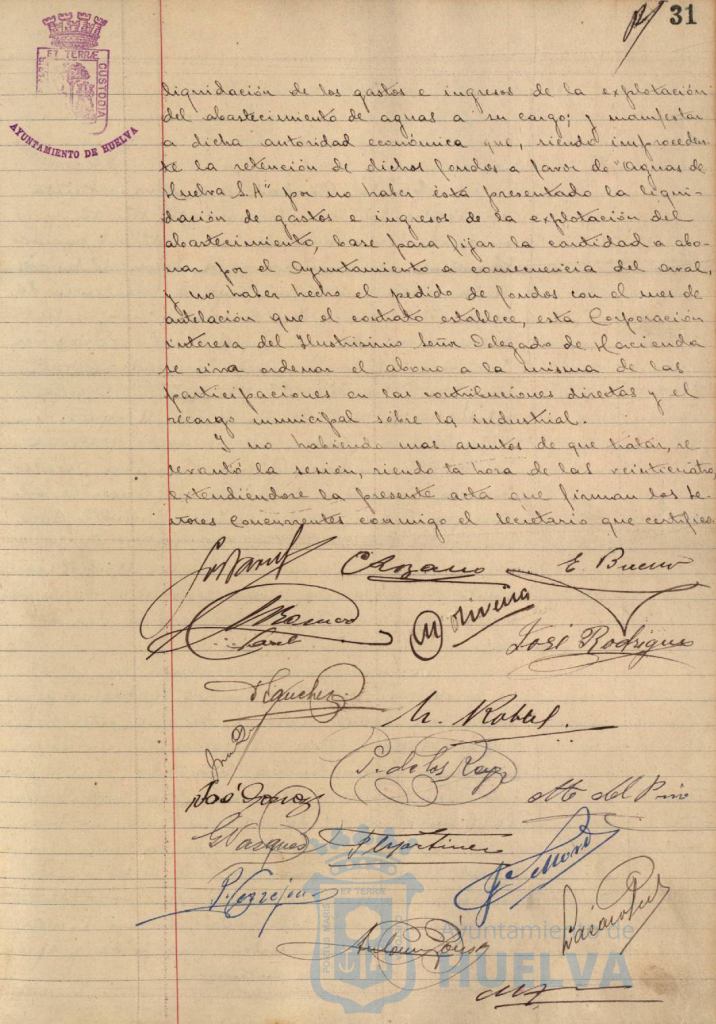 31
ET TERRÆ
CUSTODIA
AYUNTAMIENTO DE HUELVA
liquidación de los gastos e ingresos de la explotación
del abastecimiento de aguas a su cargo; y manifestar
a dicha autoridad económica que, siendo improceden-
te la retención de dichos fondos a favor de "Aguas de
Huelva S.A" por no haber ésta presentado la liqui-
dación de gastos e ingresos de la explotación del
abastecimiento, base para fijar la cantidad a abo-
nar por el Ayuntamiento a consecuencia del aval,
y no haber hecho el pedido de fondos con el mes de
antelación que el contrato establece, esta Corporación
interesa del Ilustrisimo Señor Delegado de Hacienda
se sirva ordenar el abono a la misma de las
participaciones en las contribuciones directas y el
recargo municipal sobre la industrial.
Y no habiendo mas asuntos de que tratar, se
levantó la sesión, siendo la hora de las veinticuatro,
extendiéndose la presente acta que firman los Se-
ñores Concurrentes conmigo el Secretario que certifico
C Lozano E. Bueno
M Oliveira
José Rodriguez
P. de los Reyes
del Pino
G Vazquez P Martinez
P. Cerrejon
ET TERRÆ
Ayuntamiento de
HUELVA